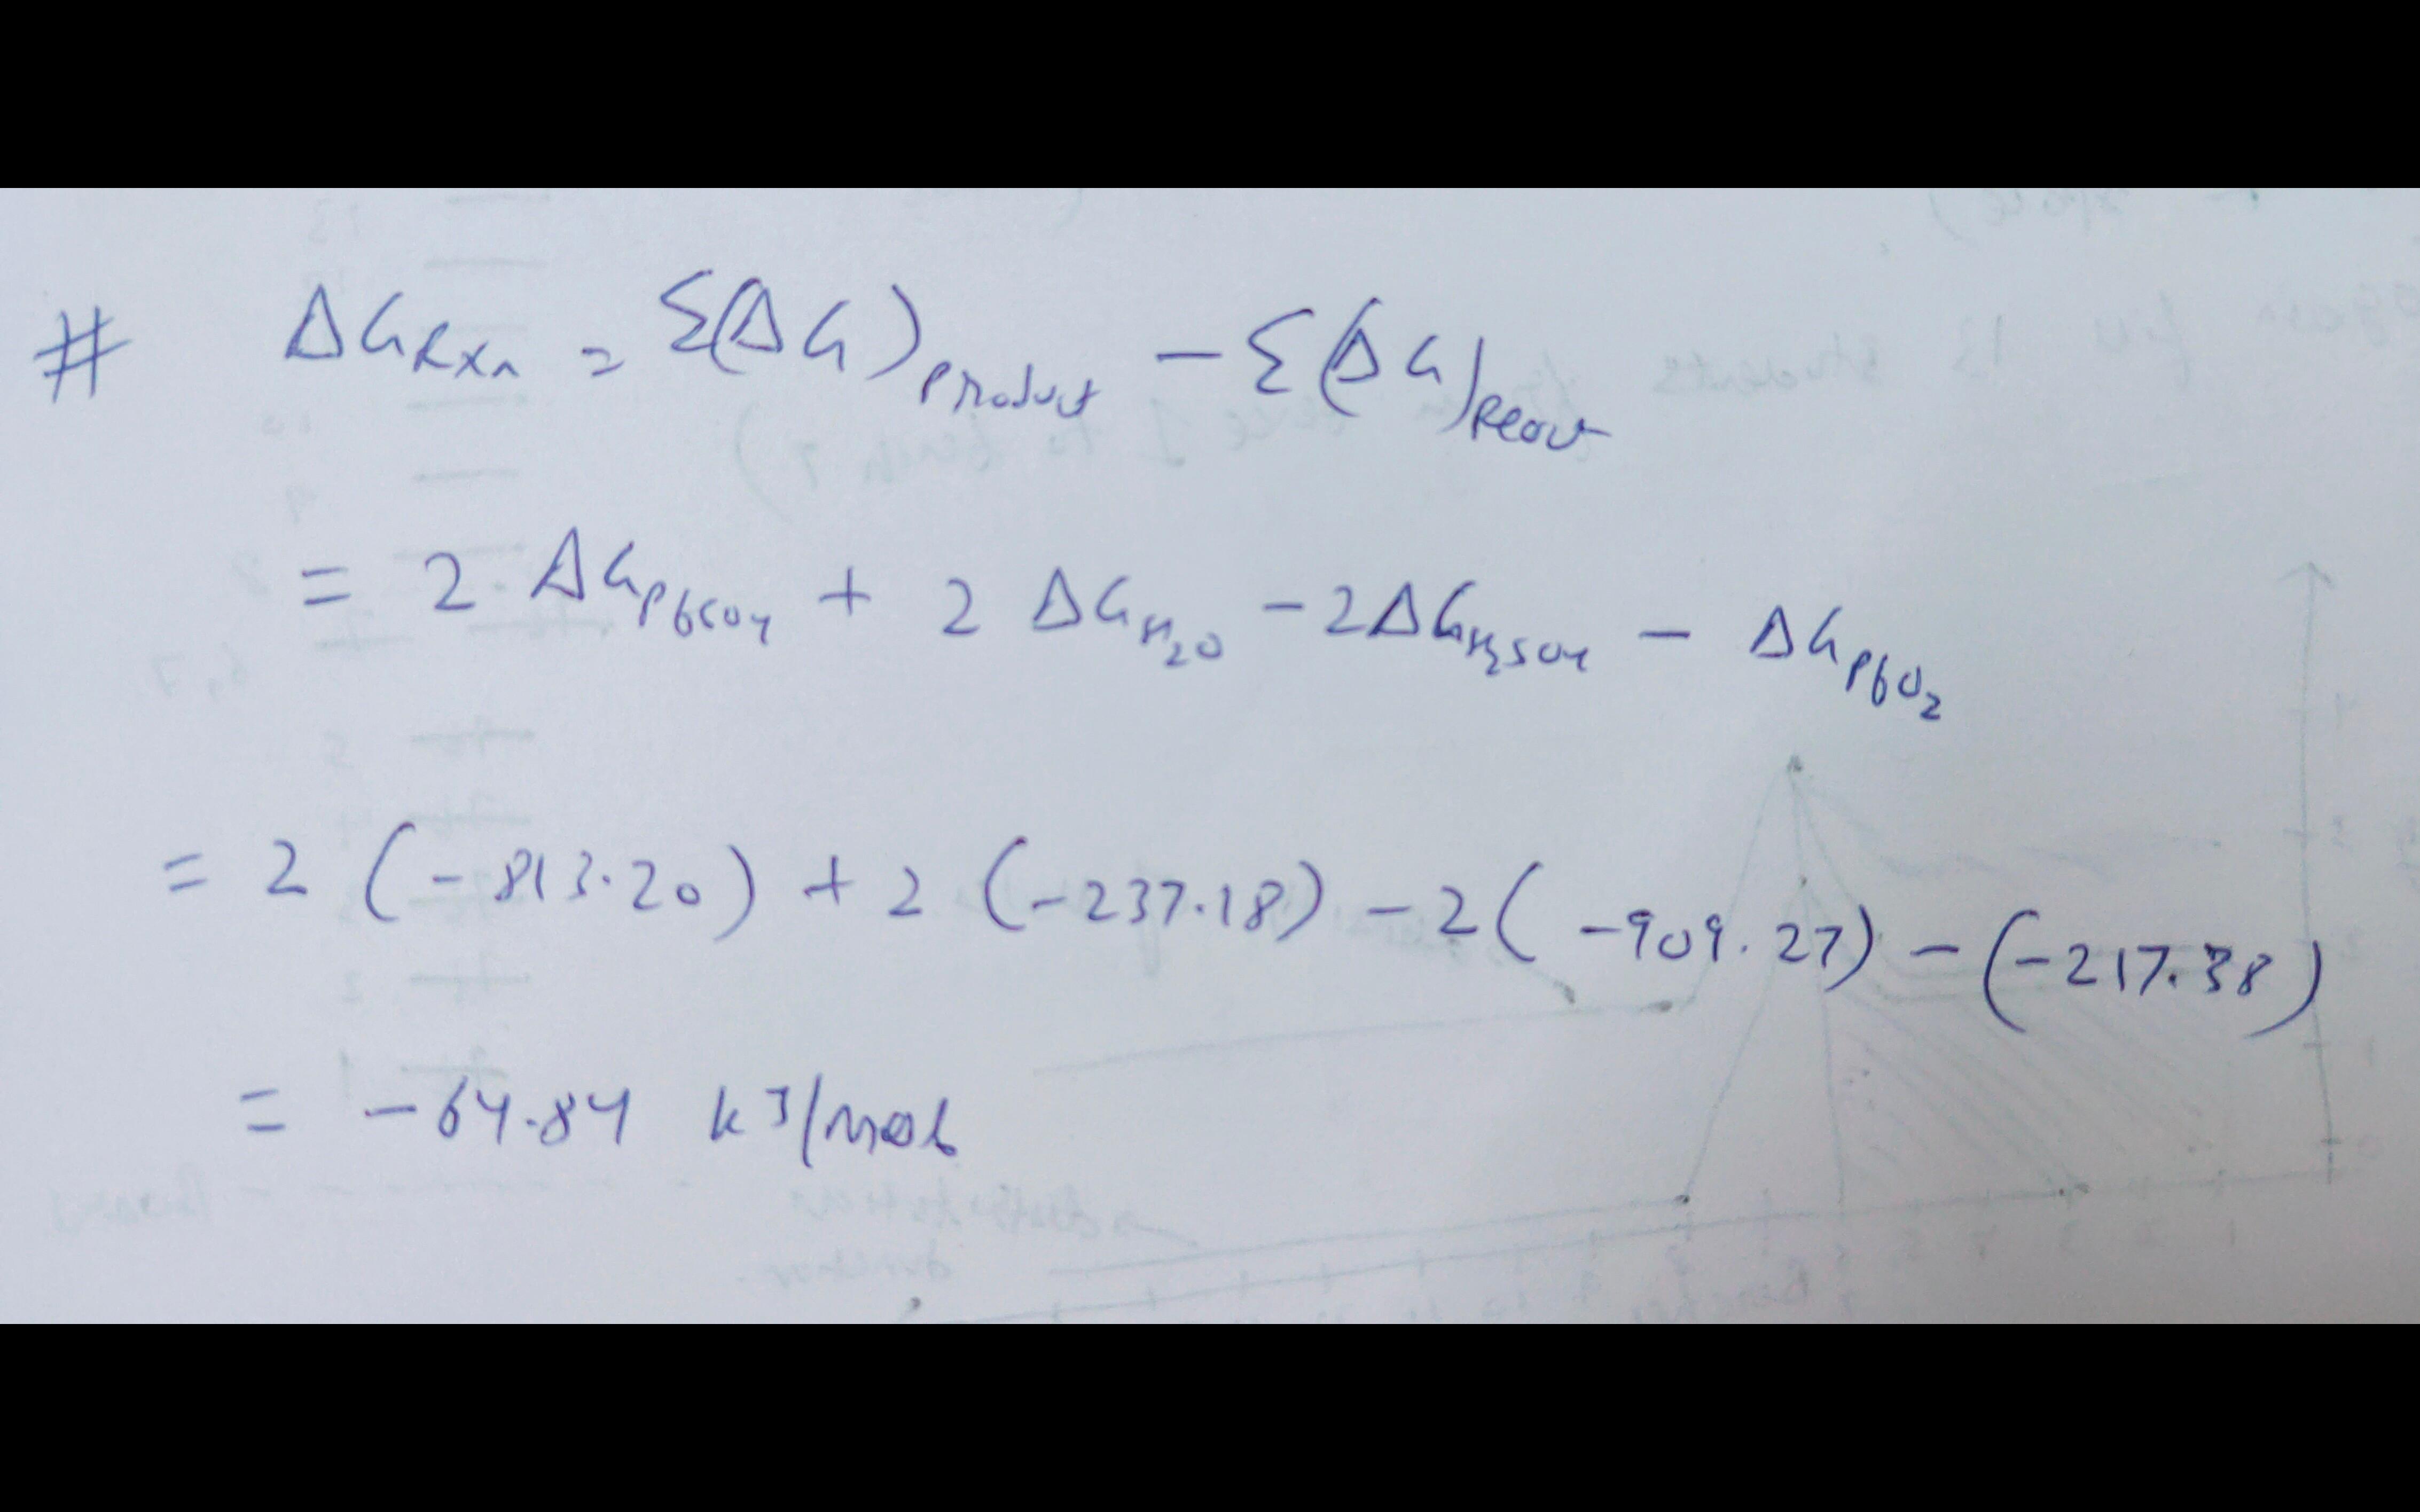 # ΔG Rxn = Σ(ΔG) Product - Σ(ΔG) React
= 2 ΔG PbSO4 + 2 ΔG H2O - 2ΔG H2SO4 - ΔG PbO2
= 2 (-813.20) + 2 (-237.18) - 2(-909.27) - (-217.38)
= -64.84 kJ/mol